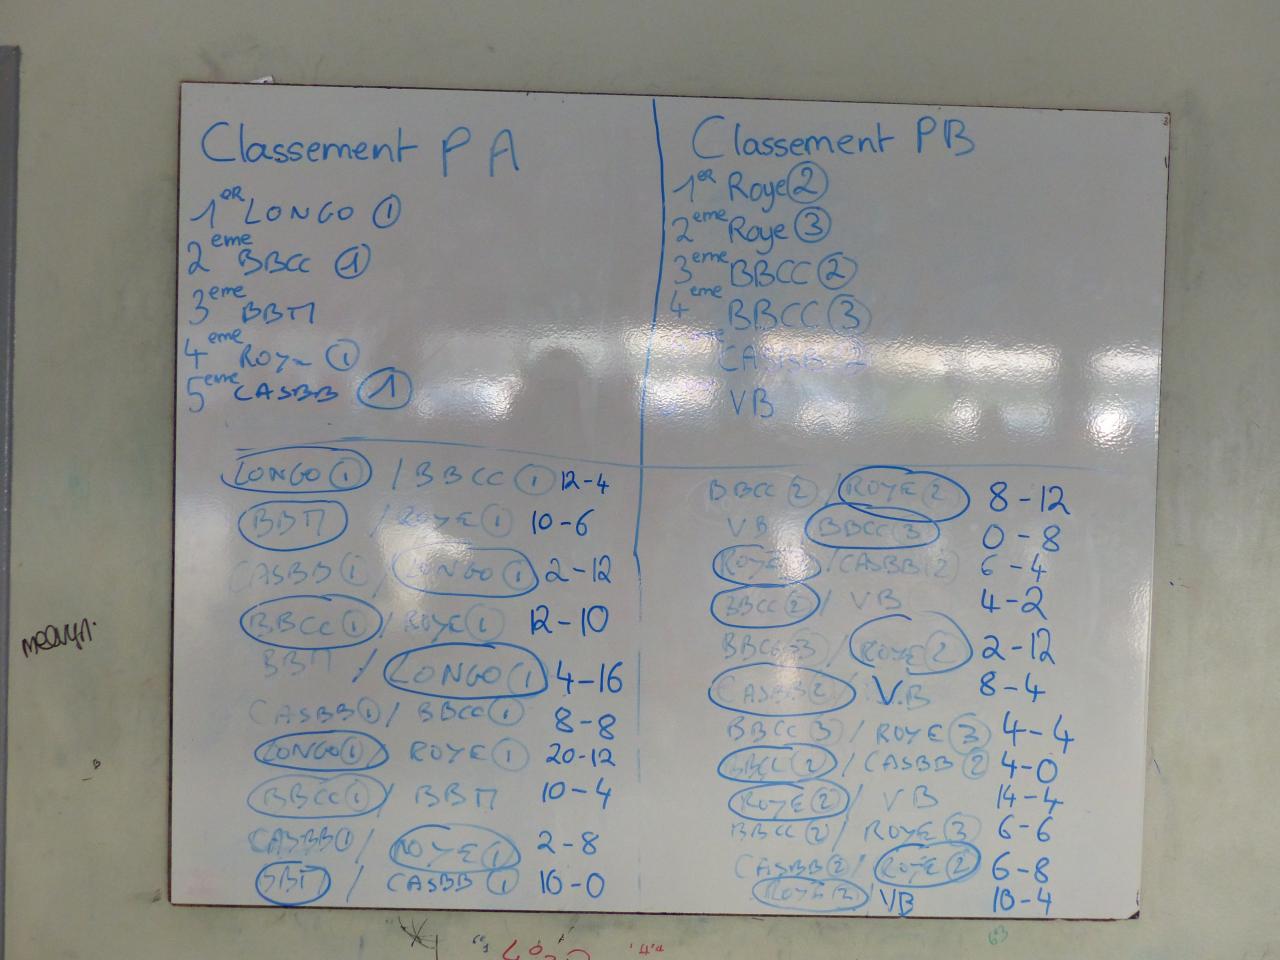 Classement PA
1er LONGO 1
2eme BBCC 1
3eme BBM
4eme ROYE 1
5eme CASBB 1
LONGO 1 / BBCC 1 12-4
BBM / ROYE 1 10-6
CASBB 1 / LONGO 1 2-12
BBCC 1 / ROYE 1 12-10
BBM / LONGO 1 4-16
CASBB 1 / BBCC 1 8-8
LONGO 1 / ROYE 1 20-12
BBCC 1 / BBM 10-4
CASBB 1 / ROYE 1 2-8
BBM / CASBB 1 10-0
Classement PB
1er Roye 2
2eme Roye 3
3eme BBCC 2
4eme BBCC 3
CASBB 2
VB
BBCC 2 / ROYE 2 8-12
VB BBCC 3 0-8
ROYE /CASBB 2 6-4
BBCC 2 / VB 4-2
BBCC 3 / ROYE 2 2-12
CASBB 2 / V.B 8-4
BBCC 3 / ROYE 3 4-4
BBCC 2 / CASBB 2 4-0
ROYE 2 / VB 14-4
BBCC 2 / ROYE 3 6-6
CASBB 2 / ROYE 2 6-8
ROYE / VB 10-4
63